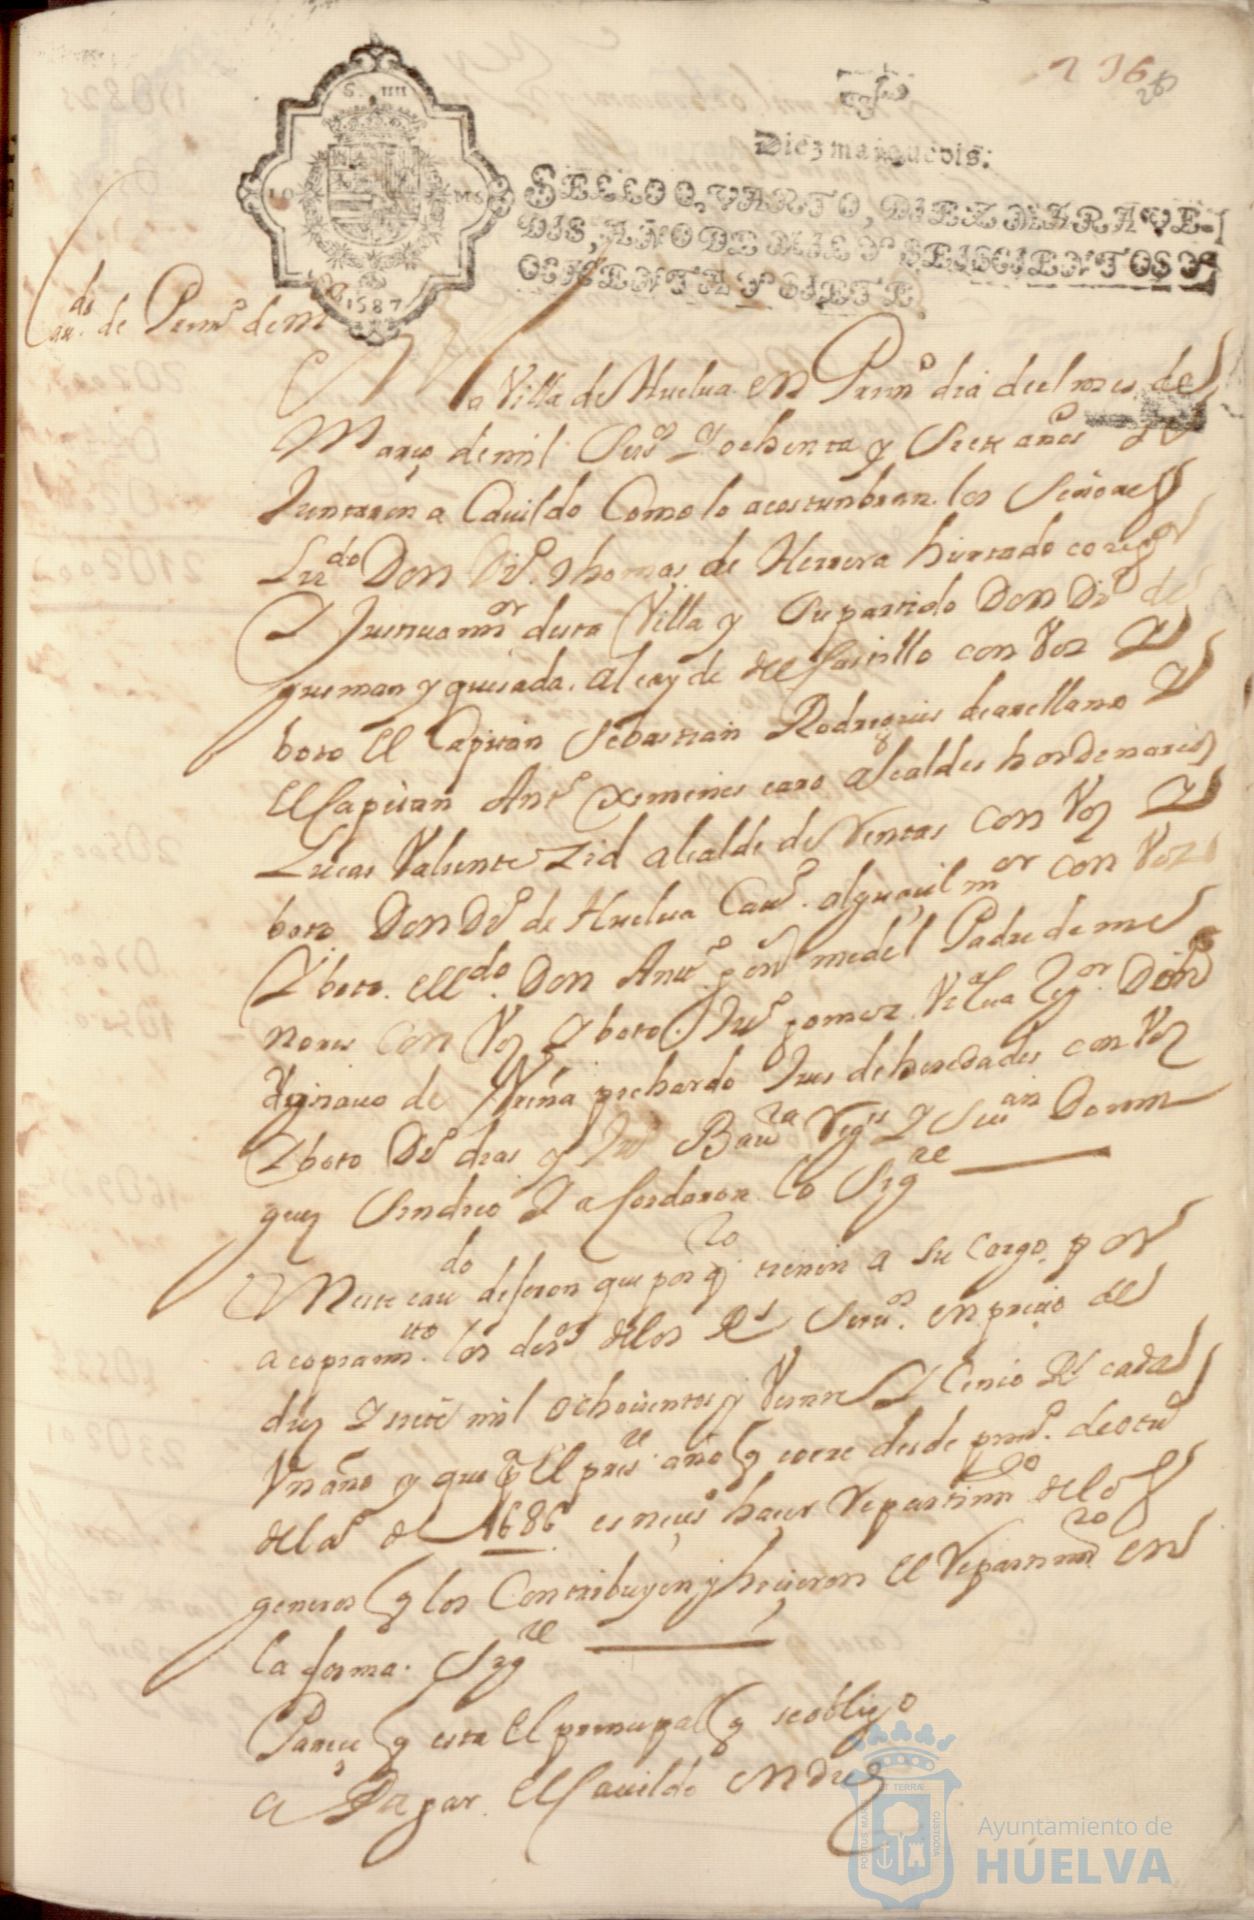 236
Diez maravedis.
SELLO QVARTO, DIEZ MARAVE-
DIS, AÑO DE MIL Y SEISCIENTOS Y
OCHENTA Y SIETE.
10 MS
1687
Cau.do de Prim.o de m
la Villa de Huelua en Prim.o dia de el mes de
Março de mil Seis.os Y ochenta y Siete años se
Juntaron a Cauildo Como lo acostunbran. los Señores
Liz.do Don Di.o Thomas de Herrera hurtado coreg.or
Y Justicia m.or desta Villa y Su partido Don Di.o de
gusman y quesada. alcayde del Castillo con Voz Y
boto El Capitan Sebastian Rodrigues de arellano Y
El Capitan Ant.o Ximenes caro alcaldes hordenarios
Lucas Valiente Zid alcalde de Ventas con Voz Y
boto Don Di.o de Huelua Cau.o alguaçil m.or con Voz
Y boto. El l.do Don Ant.o medel Padre de me
nores con Voz Y boto Ju.o gomez Reg.or Don
de Viena pichardo Jues de heredades con Voz
Y boto Di.o dias y Ju.o Bau.ta Reg.es Y Domin
guez Sindico Y acordaron lo Sig.te
En este cau.do dijeron que por q.to tienen a su Cargo por
acopiam.to los der.os de los R.s Seru.os en precio de
diez Y siete mil ochocientos y Veinte Y Cinco R.s cada
Vn año y que p.a El pres.te año q corre desde prim.o de otu.e
del a.o de 1686 es neces.o haçer Repartim.to de los
generos q los Contribuyen y hicieron El Repartim.to en
la forma. Sig.te
Parece q esta El principal q se obligo
a Pagar El Cauildo en diez
PORTUS MARIS ET TERRAE CUSTODIA
Ayuntamiento de
HUELVA